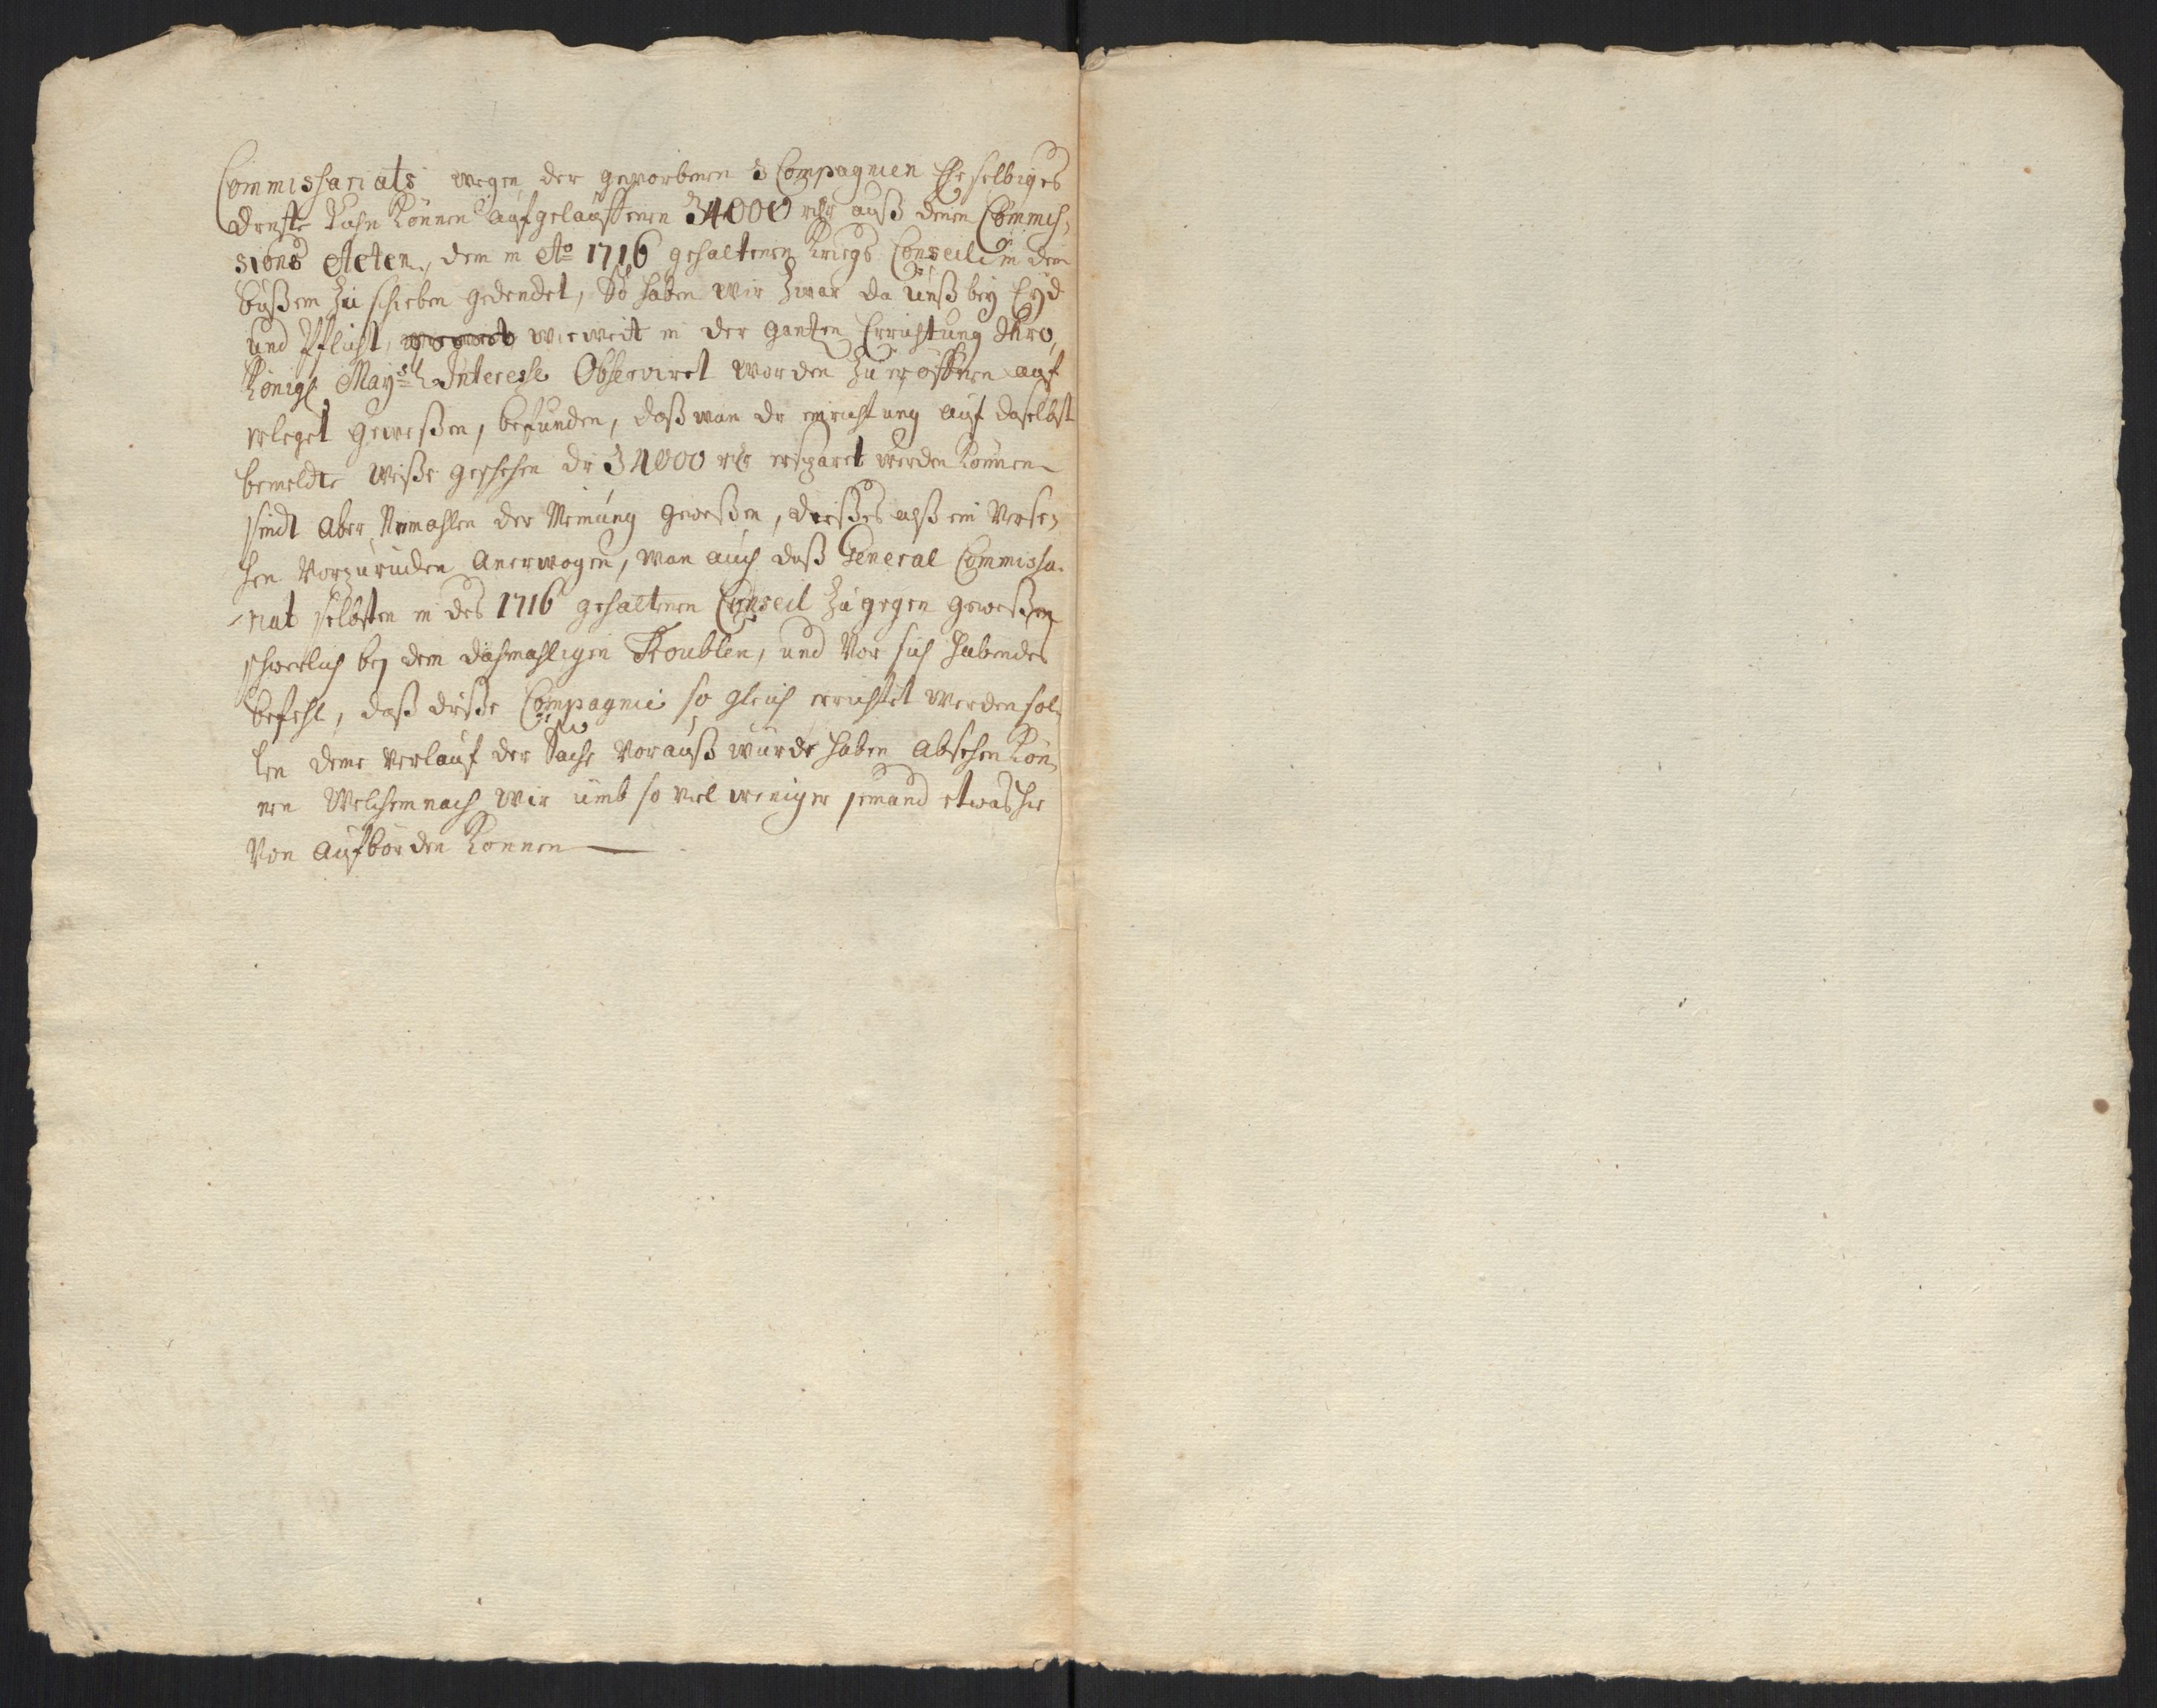 Commissariats wegen der geworbenen 3 Compagnien Ehe selbiges
dienste Tuhn können aufgelauffenen 34000 rthr auß denen Commis-
sions Acten, dem in Ao 1716 gehaltenen Kriegs Conseil in dem
Bußem zu schieben gedendet, So haben wir zwar da unß bey Eyd
und Pflicht, wie weit in der gantzen Errichtung Ihro,
Königl Mayst Interesse Observiret worden zu eröffnen auf
erleget geweßen, befunden, daß wan die einrichtung auf daselbst
bemeldte weiße geschehen die 34000 rthr ersparet werden können
sindt aber Niemahlen der Meinung geweßen, dießes alß ein Verse-
hen Vorzurücken Anerwogen, wan auch daß General Commissa-
riat selbsten in des 1716 gehaltenen Conseil zugegen geweßen
schwerlich bey dem dahmahligen Troublen, und Vor sich habendes
befehl, daß dieße Compagnie so gleich errichtet werden sol-
len deme verlauf der Sache Vorauß würde haben absehen kön-
nen Welchemnach wir umb so viel weniger jemand etwas hie
Von aufbörden können